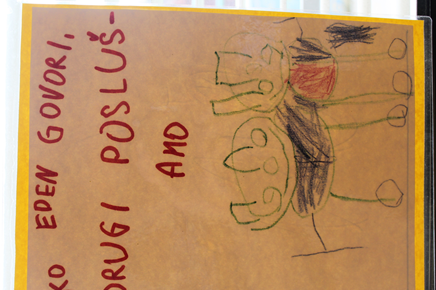 KO EDEN GOVORI,
DRUGI POSLUŠ-
AMO